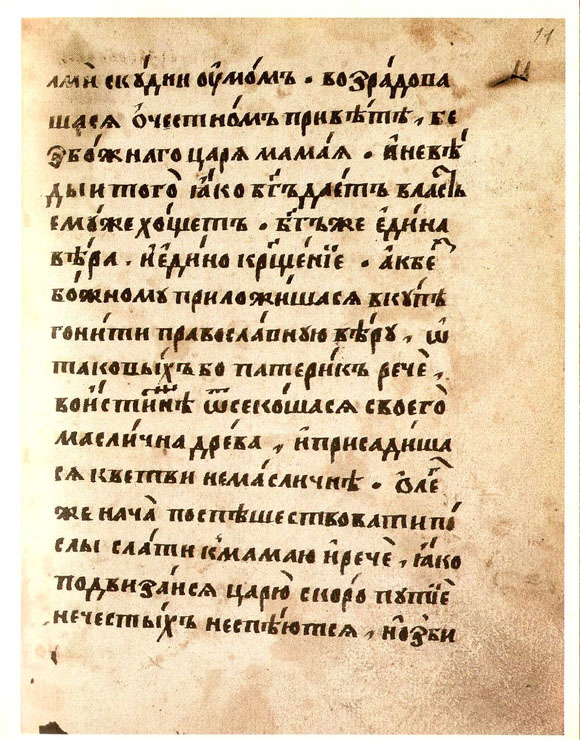 11
лми скꙋдни ᲂумомъ . возрадова
шася ѻ҆честномъ привѣ́тѣ , бе
збожнаго царя мамая . и҆невѣ́
ды и того ꙗ҆́ко бг҃ъ даетъ власть
емꙋже хо́щетъ . бг҃ъ же еди́на
вѣ́ра . и҆еди́но крⷭ҇щенїе . а҆кбеꙁ
бо́жномꙋ приложи́шася вкꙋпѣ
гони́ти правосла́внꙋю вѣ́рꙋ , ѿ
таковы́хъ бо патери́къ рече ,
вои́стиннѣ ѿсеко́шася своего
масли́чна дре́ва , и҆присади́ша
ся кветви нема́сличнѣ . ѻле́г
же нача̀ поспѣшествовати по
слы сла́ти кмамаю и҆рече , ꙗ҆́ко
подвиза́йся царю скоро пꙋтїе
нечесты́хъ неспѣ́ются , ноꙁби